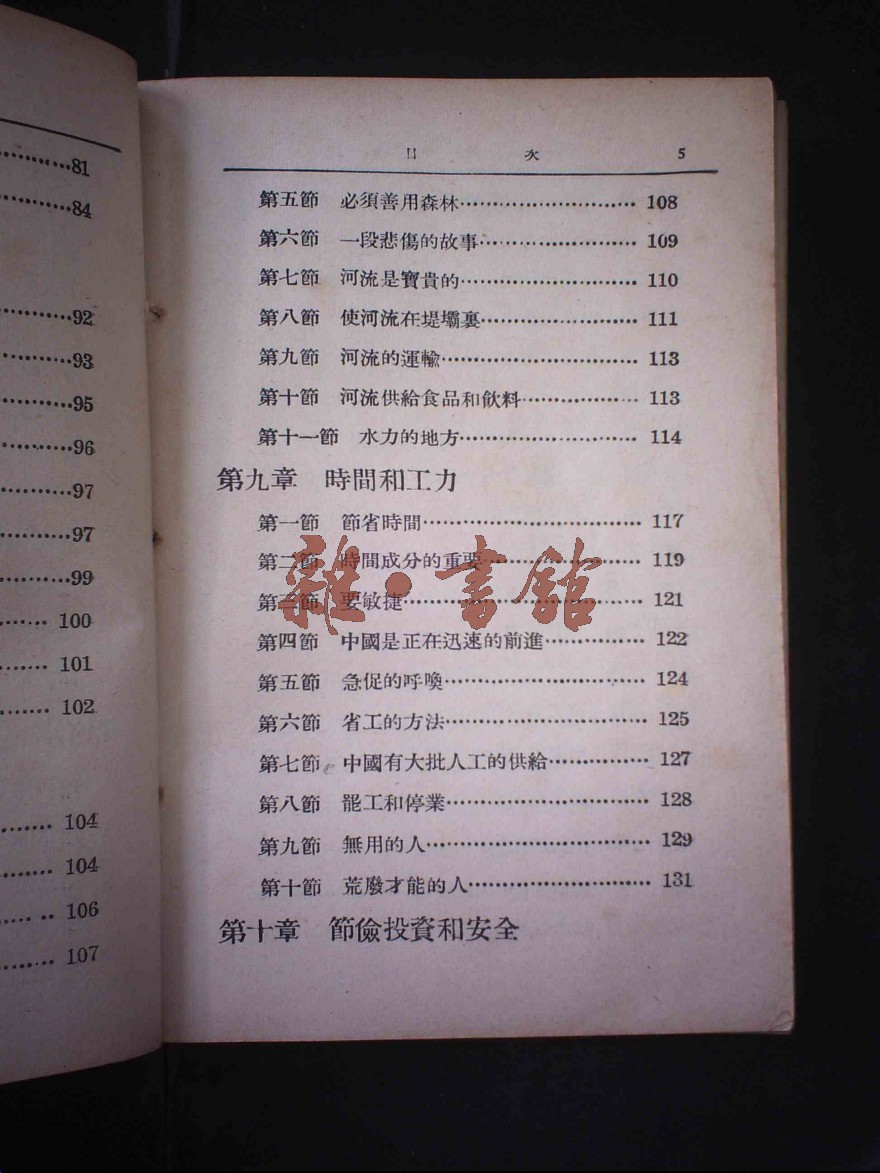 81
84
92
93
95
96
97
97
99
100
101
102
104
104
106
107
目 次 5
第五節 必須善用森林 108
第六節 一段悲傷的故事 109
第七節 河流是寶貴的 110
第八節 使河流在堤壩裏 111
第九節 河流的運輸 113
第十節 河流供給食品和飲料 113
第十一節 水力的地方 114
第九章 時間和工力
第一節 節省時間 117
第二節 時間成分的重要 119
第三節 要敏捷 121
第四節 中國是正在迅速的前進 122
第五節 急促的呼喚 124
第六節 省工的方法 125
第七節 中國有大批人工的供給 127
第八節 罷工和停業 128
第九節 無用的人 129
第十節 荒廢才能的人 131
第十章 節儉投資和安全
雜·書館